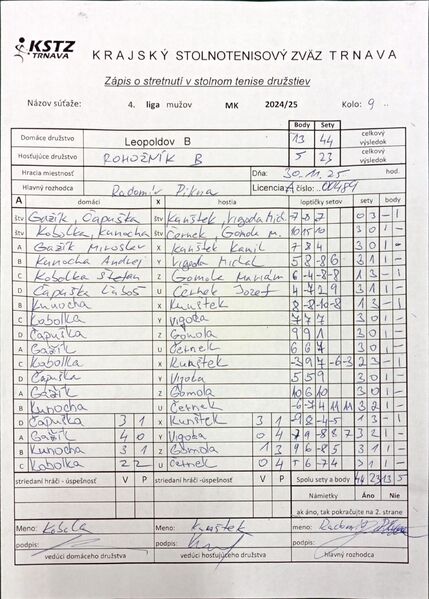 KSTZ
TRNAVA
KRAJSKÝ STOLNOTENISOVÝ ZVÄZ TRNAVA
Zápis o stretnutí v stolnom tenise družstiev
Názov súťaže: 4. liga mužov MK 2024/25 Kolo: 9 ..
Body Sety
Domáce družstvo Leopoldov B 13 44 celkový výsledok
Hosťujúce družstvo ROHOŽNÍK B 5 23 celkový výsledok
Hracia miestnosť Dňa: 30.11.25 hod.
Hlavný rozhodca Radomír Pikna Licencia A číslo: ..00489
A domáci x hostia loptičky setov sety body
štv Gažík, Čapuška štv Kunštek, Vigoda Mich. -7 -8 -7 0 3 - 1
štv Kobolka, Kunocha štv Černek, Gomola M. 10 15 10 3 0 1 -
A Gažík Miroslav X Kunštek Kamil 7 8 4 3 0 1 -
B Kunocha Andrej Y Vigoda Michal 5 8 -8 6 3 1 1 -
C Kobolka Štefan Z Gomola Marián 6 -4 -8 -8 1 3 - 1
D Čapuška Ľuboš U Černek Jozef 4 -7 2 9 3 1 1 -
B Kunocha X Kunštek 8 -8 -10 -8 1 3 - 1
C Kobolka Y Vigoda 7 7 7 3 0 1 -
D Čapuška Z Gomola 9 9 1 3 0 1 -
A Gažík U Černek 6 6 7 3 0 1 -
C Kobolka X Kunštek -3 9 7 -6 -3 2 3 - 1
D Čapuška Y Vigoda 5 5 9 3 0 1 -
A Gažík Z Gomola 10 6 10 3 0 1 -
B Kunocha U Černek -6 -7 4 11 11 3 2 1 -
D Čapuška 3 1 X Kunštek 3 1 -9 8 -4 -5 1 3 - 1
A Gažík 4 0 Y Vigoda 0 4 -7 9 -8 8 7 3 2 1 -
B Kunocha 3 1 Z Gomola 1 3 9 6 -8 5 3 1 1 -
C Kobolka 2 2 U Černek 0 4 6 -7 4 3 1 1 -
striedaní hráči - úspešnosť V P striedaní hráči - úspešnosť V P Spolu sety a body 44 23 13 5
Námietky Áno Nie
ak áno, tak pokračujte na 2. strane
Meno: Kobolka Meno: Kunštek meno: Radomír Pikna
podpis: podpis: podpis:
vedúci domáceho družstva vedúci hosťujúceho družstva hlavný rozhodca